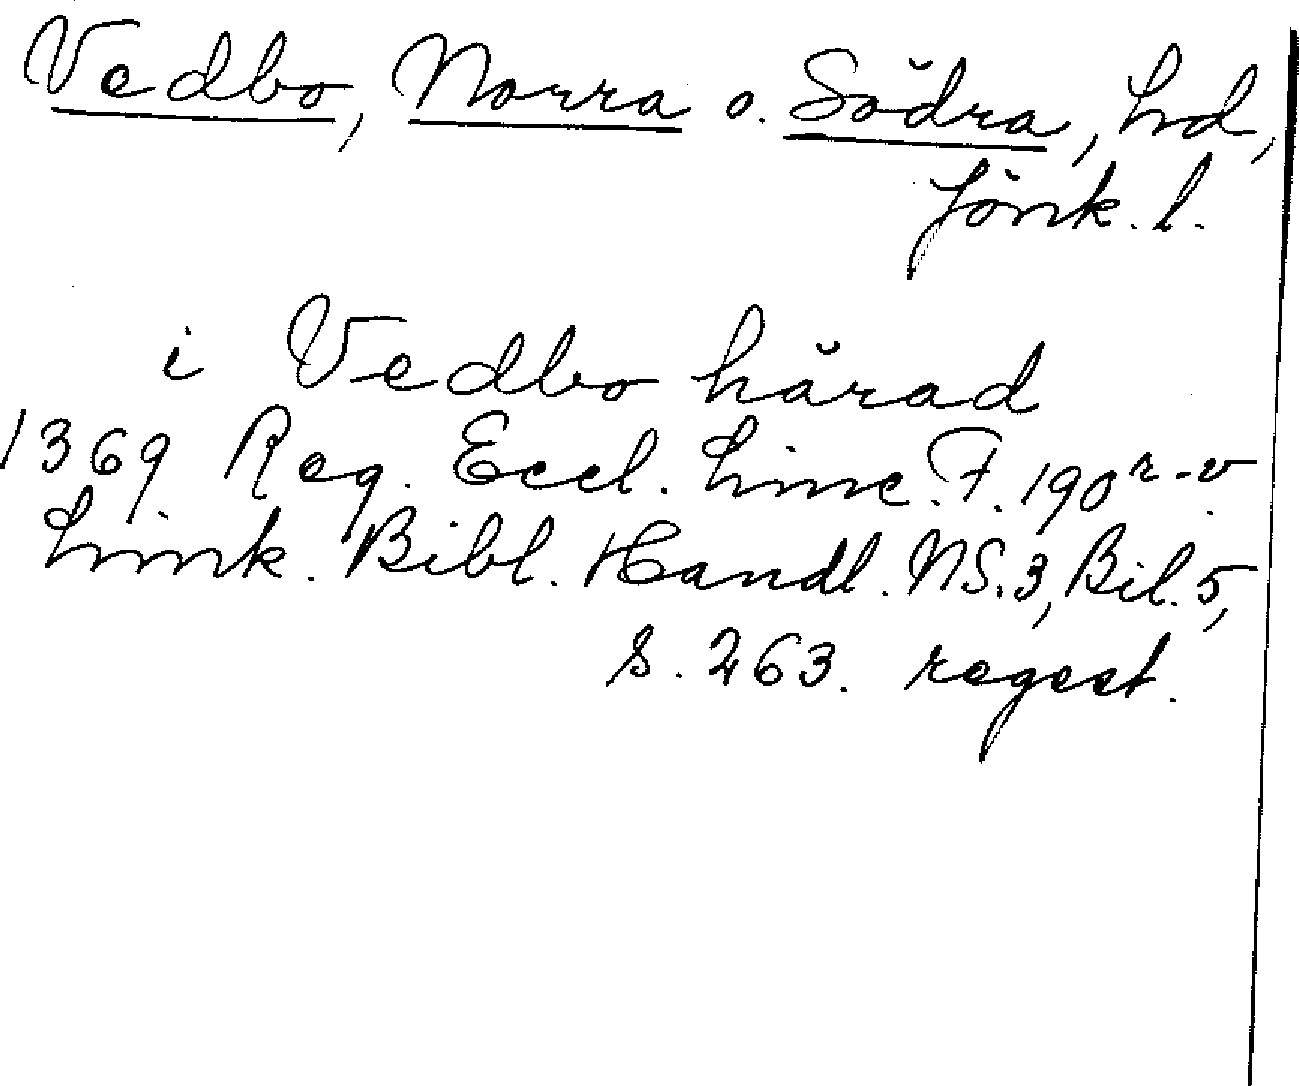 Vedbo, Norra o. Södra, hd,
Jönk. l.
i Vedbo härad
1369 Reg. Eccl. Linc. F. 190 r-v.
Link. Bibl. Handl. NS. 3, Bil. 5,
s. 263. regest.